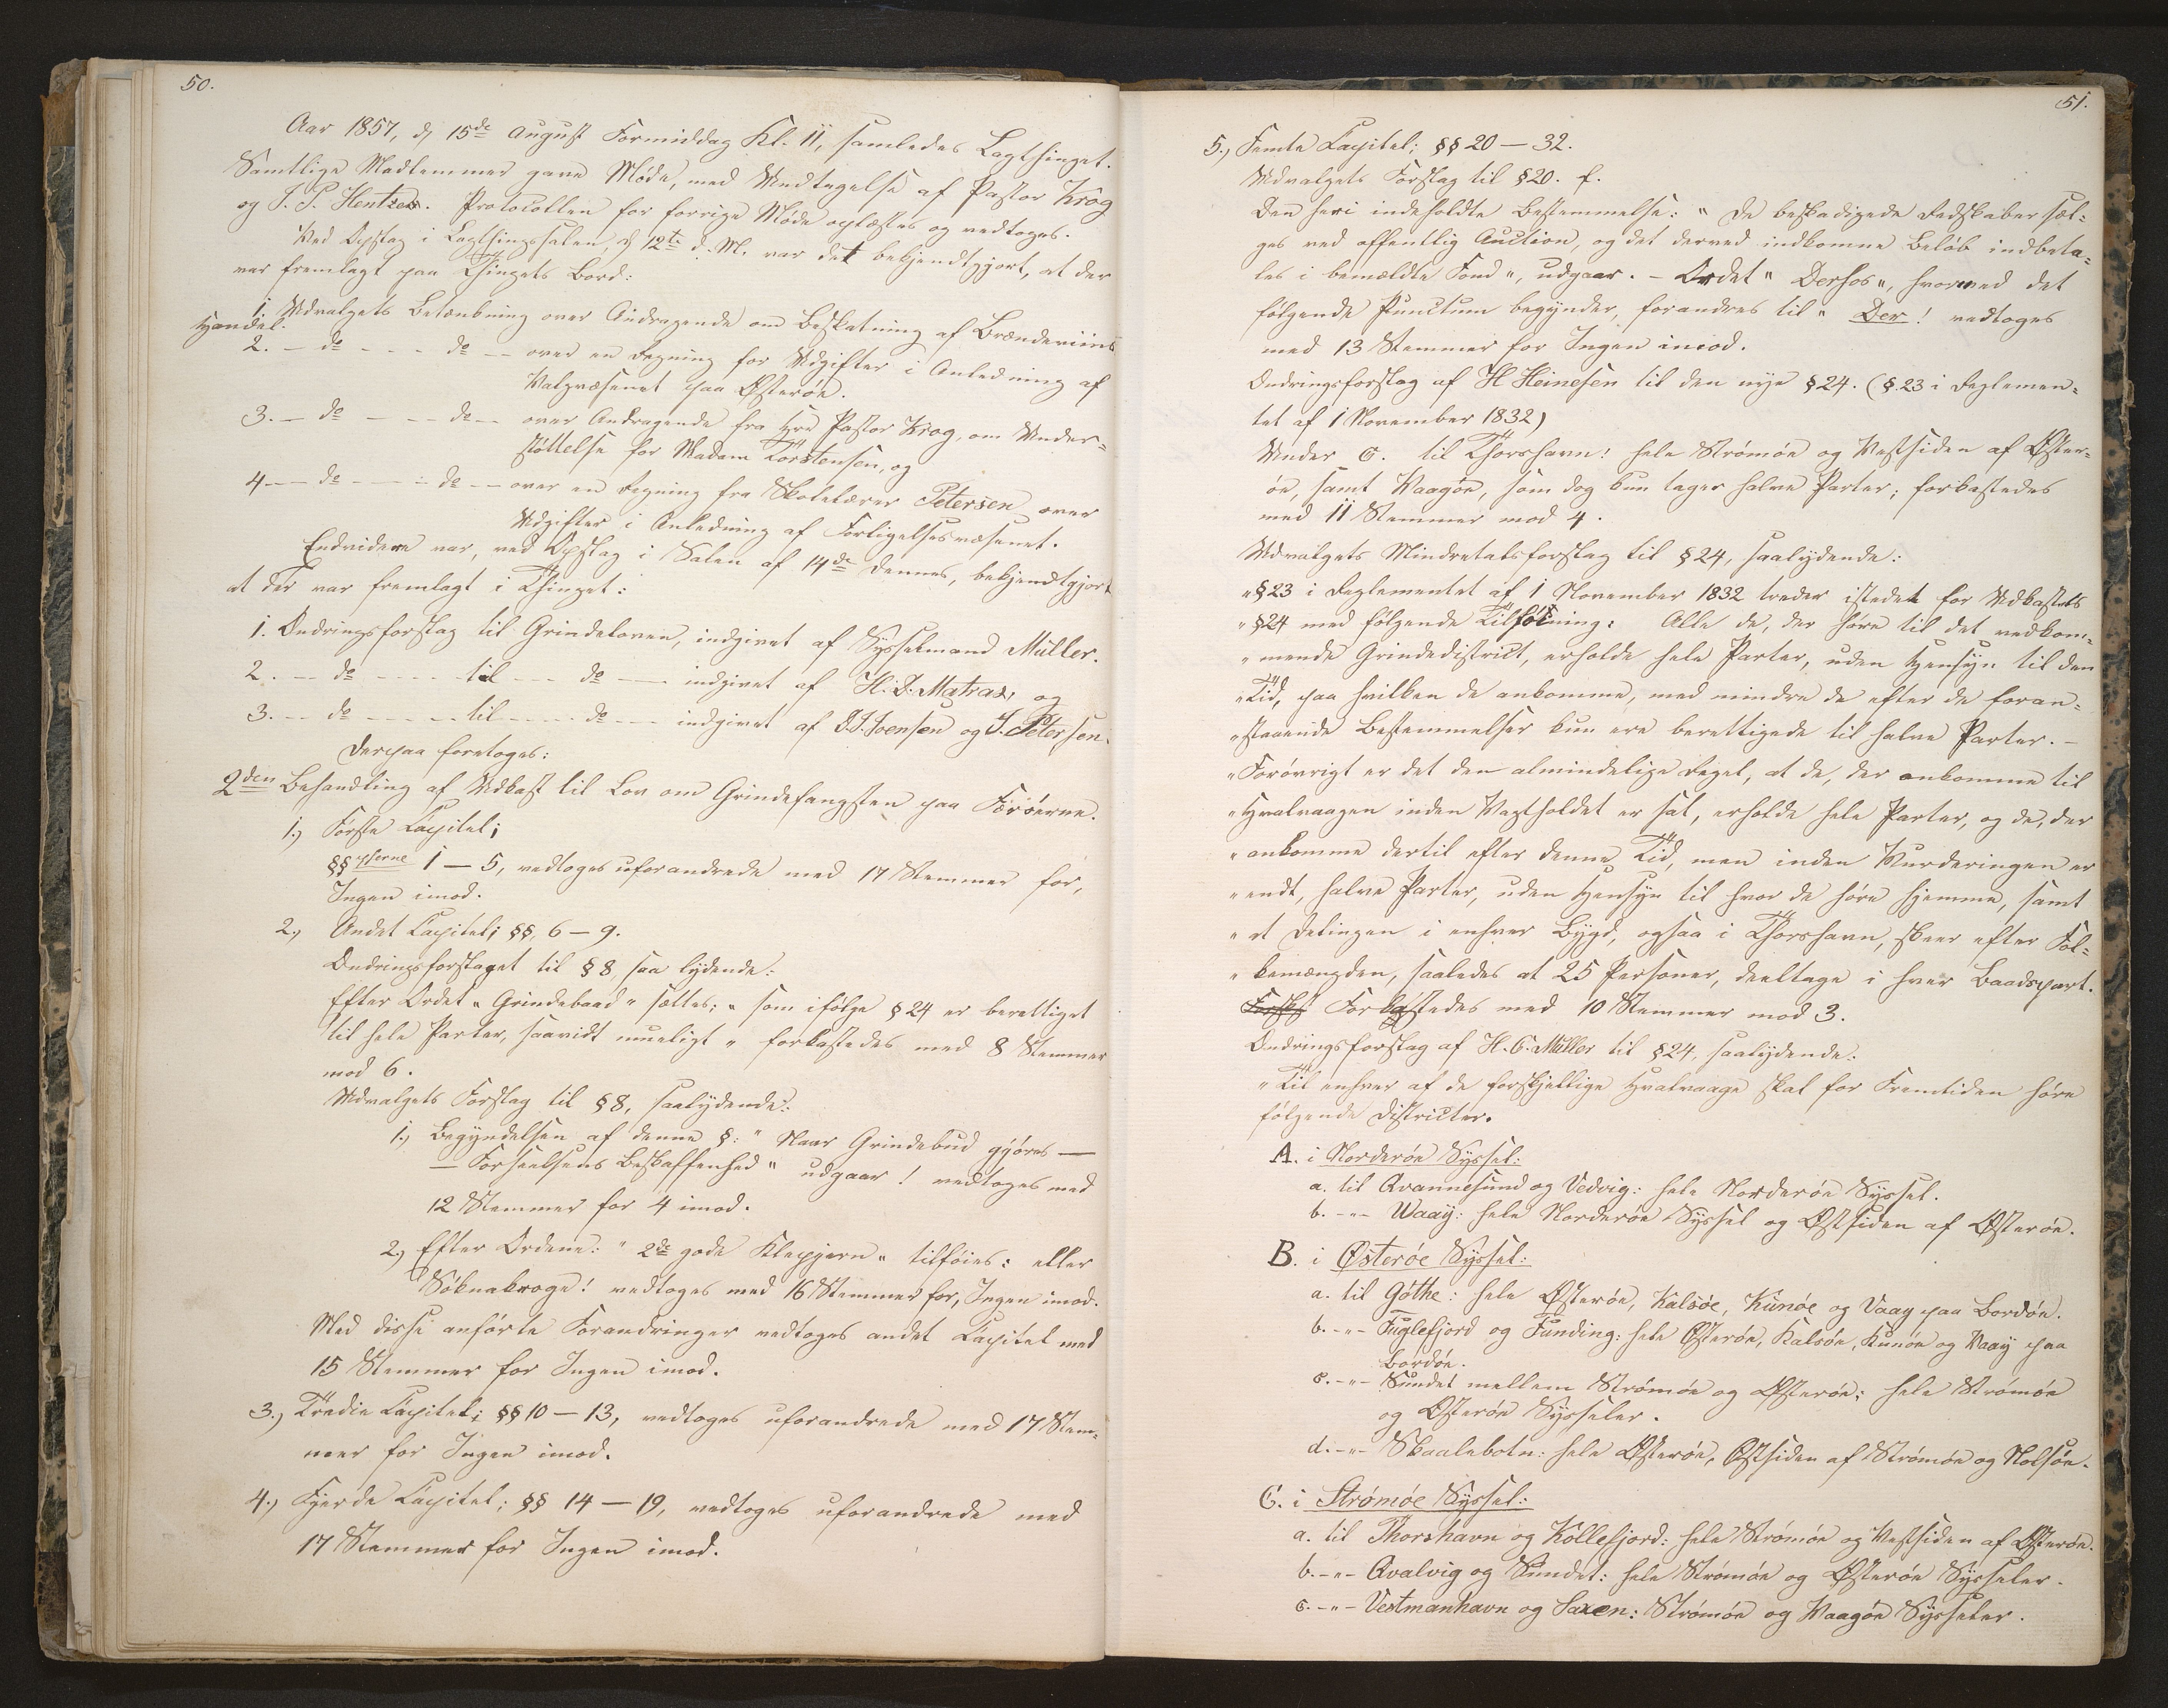 50.
Aar 1857, d. 15de August Formiddag Kl. 11, samledes Lagthinget.
Samtlige Medlemmer gave Møde, med Undtagelse af Pastor Krog
og J. P. Hentze. Protocollen for forrige Møde oplæstes og vedtoges.
Ved Opslag i Lagthingssalen, d. 12te d. M. var det bekjendtgjort, at der
var fremlagt paa Thingets Bord:
1. Udvalgets Betænkning over Andragende om Beskatning af Brændeviins
Handel.
2. — do - - - do — over en Regning for Udgifter i Anledning af
Valgvæsenet paa Østerøe.
3. — do - - - do — over Andragende fra Hr. Pastor Krog, om Under-
støttelse for Madam Torstensen, og
4. — do - - - do — over en Regning fra Skolelærer Petersen over
Udgifter i Anledning af Forligelsesvæsenet.
Endvidere var, ved Opslag i Salen af 14de dennes, bekjendtgjort
at der var fremlagt i Thinget:
1. Ændringsforslag til Grindeloven, indgivet af Sysselmand Müller.
2. — do - - - til - - - do — indgivet af H. J. Matras, og
3. — do - - - til - - - do — indgivet af J. J. Joensen og J. Petersen.
Derpaa foretoges:
2den Behandling af Udkast til Lov om Grindefangsten paa Færøerne.
1.) Første Capitel;
§§pherne 1 — 5, vedtoges uforandrede med 17 Stemmer for,
Ingen imod.
2.) Andet Capitel; §§. 6 — 9.
Ændringsforslaget til § 8, saa lydende:
Efter Ordet "Grindebaad" sættes; "som ifølge § 24 er berettiget
til hele Parter, saavidt mueligt" forkastedes med 8 Stemmer
mod 6.
Udvalgets Forslag til § 8, saalydende:
1.) Begyndelsen af denne §: "Naar Grindebud gjøres —
— Forseelsens Beskaffenhed" udgaar! vedtoges med
12 Stemmer for 4 imod.
2.) Efter Ordene: "2de gode Klepjern" tilføies: eller
Sóknakroge! vedtoges med 16 Stemmer for, Ingen imod.
Med disse anførte Forandringer vedtoges andet Capitel med
15 Stemmer for Ingen imod.
3.) Tredie Capitel; §§ 10 — 13, vedtoges uforandrede med 17 Stem-
mer for Ingen imod.
4.) Fjerde Capitel; §§ 14 — 19, vedtoges uforandrede med
17 Stemmer for Ingen imod.
51.
5.) Femte Capitel; §§ 20 — 32.
Udvalgets Forslag til § 20. f.
Den heri indeholdte Bestemmelse: "De beskadigede Redskaber sæl-
ges ved offentlig Auction, og det derved indkomne Beløb indbeta-
les i bemældte Fond", udgaar. — Ordet "Derhos", hvormed det
følgende Punctum begynder, forandres til "Der! vedtoges
med 13 Stemmer for Ingen imod.
Ændringsforslag af H Heinesen til den nye § 24. (§. 23 i Reglemen-
tet af 1 November 1832)
Under C. til Thorshavn: hele Strømøe og Vestsiden af Øster-
øe, samt Vaagøe, som dog kun tager halve Parter; forkastedes
med 11 Stemmer mod 4.
Udvalgets Mindretalsforslag til § 24, saalydende:
"§ 23 i Reglementet af 1 November 1832 træder istedet for Udkastets
"§ 24 med følgende Tilføining: Alle de, der høre til det vedkom-
"mende Grindedistrict, erholde hele Parter, uden Hensyn til den
"Tid, paa hvilken de ankomme, med mindre de efter de foran-
"staaende Bestemmelser kun ere berettigede til halve Parter. —
"Forøvrigt er det den almindelige Regel, at de, der ankomme til
"Hvalvaagen inden Vagtholdet er sat, erholde hele Parter, og de, der
"ankomme dertil efter denne Tid, men inden Vurderingen er
"endt, halve Parter, uden Hensyn til hvor de høre hjemme, samt
"at Delingen i enhver Bygd, ogsaa i Thorshavn, skeer efter Fol-
"kemængden, saaledes at 25 Personer, deeltage i hver Baadspart.
Forkastedes med 10 Stemmer mod 3.
Ændringsforslag af H. C. Müller til § 24, saalydende:
"Til enhver af de forskjellige Hvalvaage skal for Fremtiden høre
følgende Districter.
A. i Norderøe Syssel:
a. til Qvannesund og Vedvig: hele Norderøe Syssel.
b. -"- Waay: hele Norderøe Syssel og Østsiden af Østerøe.
B. i Østerøe Syssel:
a. til Gøthe: hele Østerøe, Kalsøe, Kunøe og Vaay paa Bordøe.
b. -"- Fuglefjord og Funding: hele Østerøe, Kalsøe, Kunøe og Vaay paa
Bordøe.
c. -"- Sundet mellem Strømøe og Østerøe: hele Strømøe
og Østerøe Sysseler.
d. -"- Skaalebotn: hele Østerøe, Østsiden af Strømøe og Nolsøe.
C. i Strømøe Syssel:
a. til Thorshavn og Kollefjord: hele Strømøe og Vestsiden af Østerøe.
b. -"- Qvalvig og Sundet: hele Strømøe og Østerøe Sysseler.
c. -"- Vestmanhavn og Saxen: Strømøe og Vaagøe Sysseler.